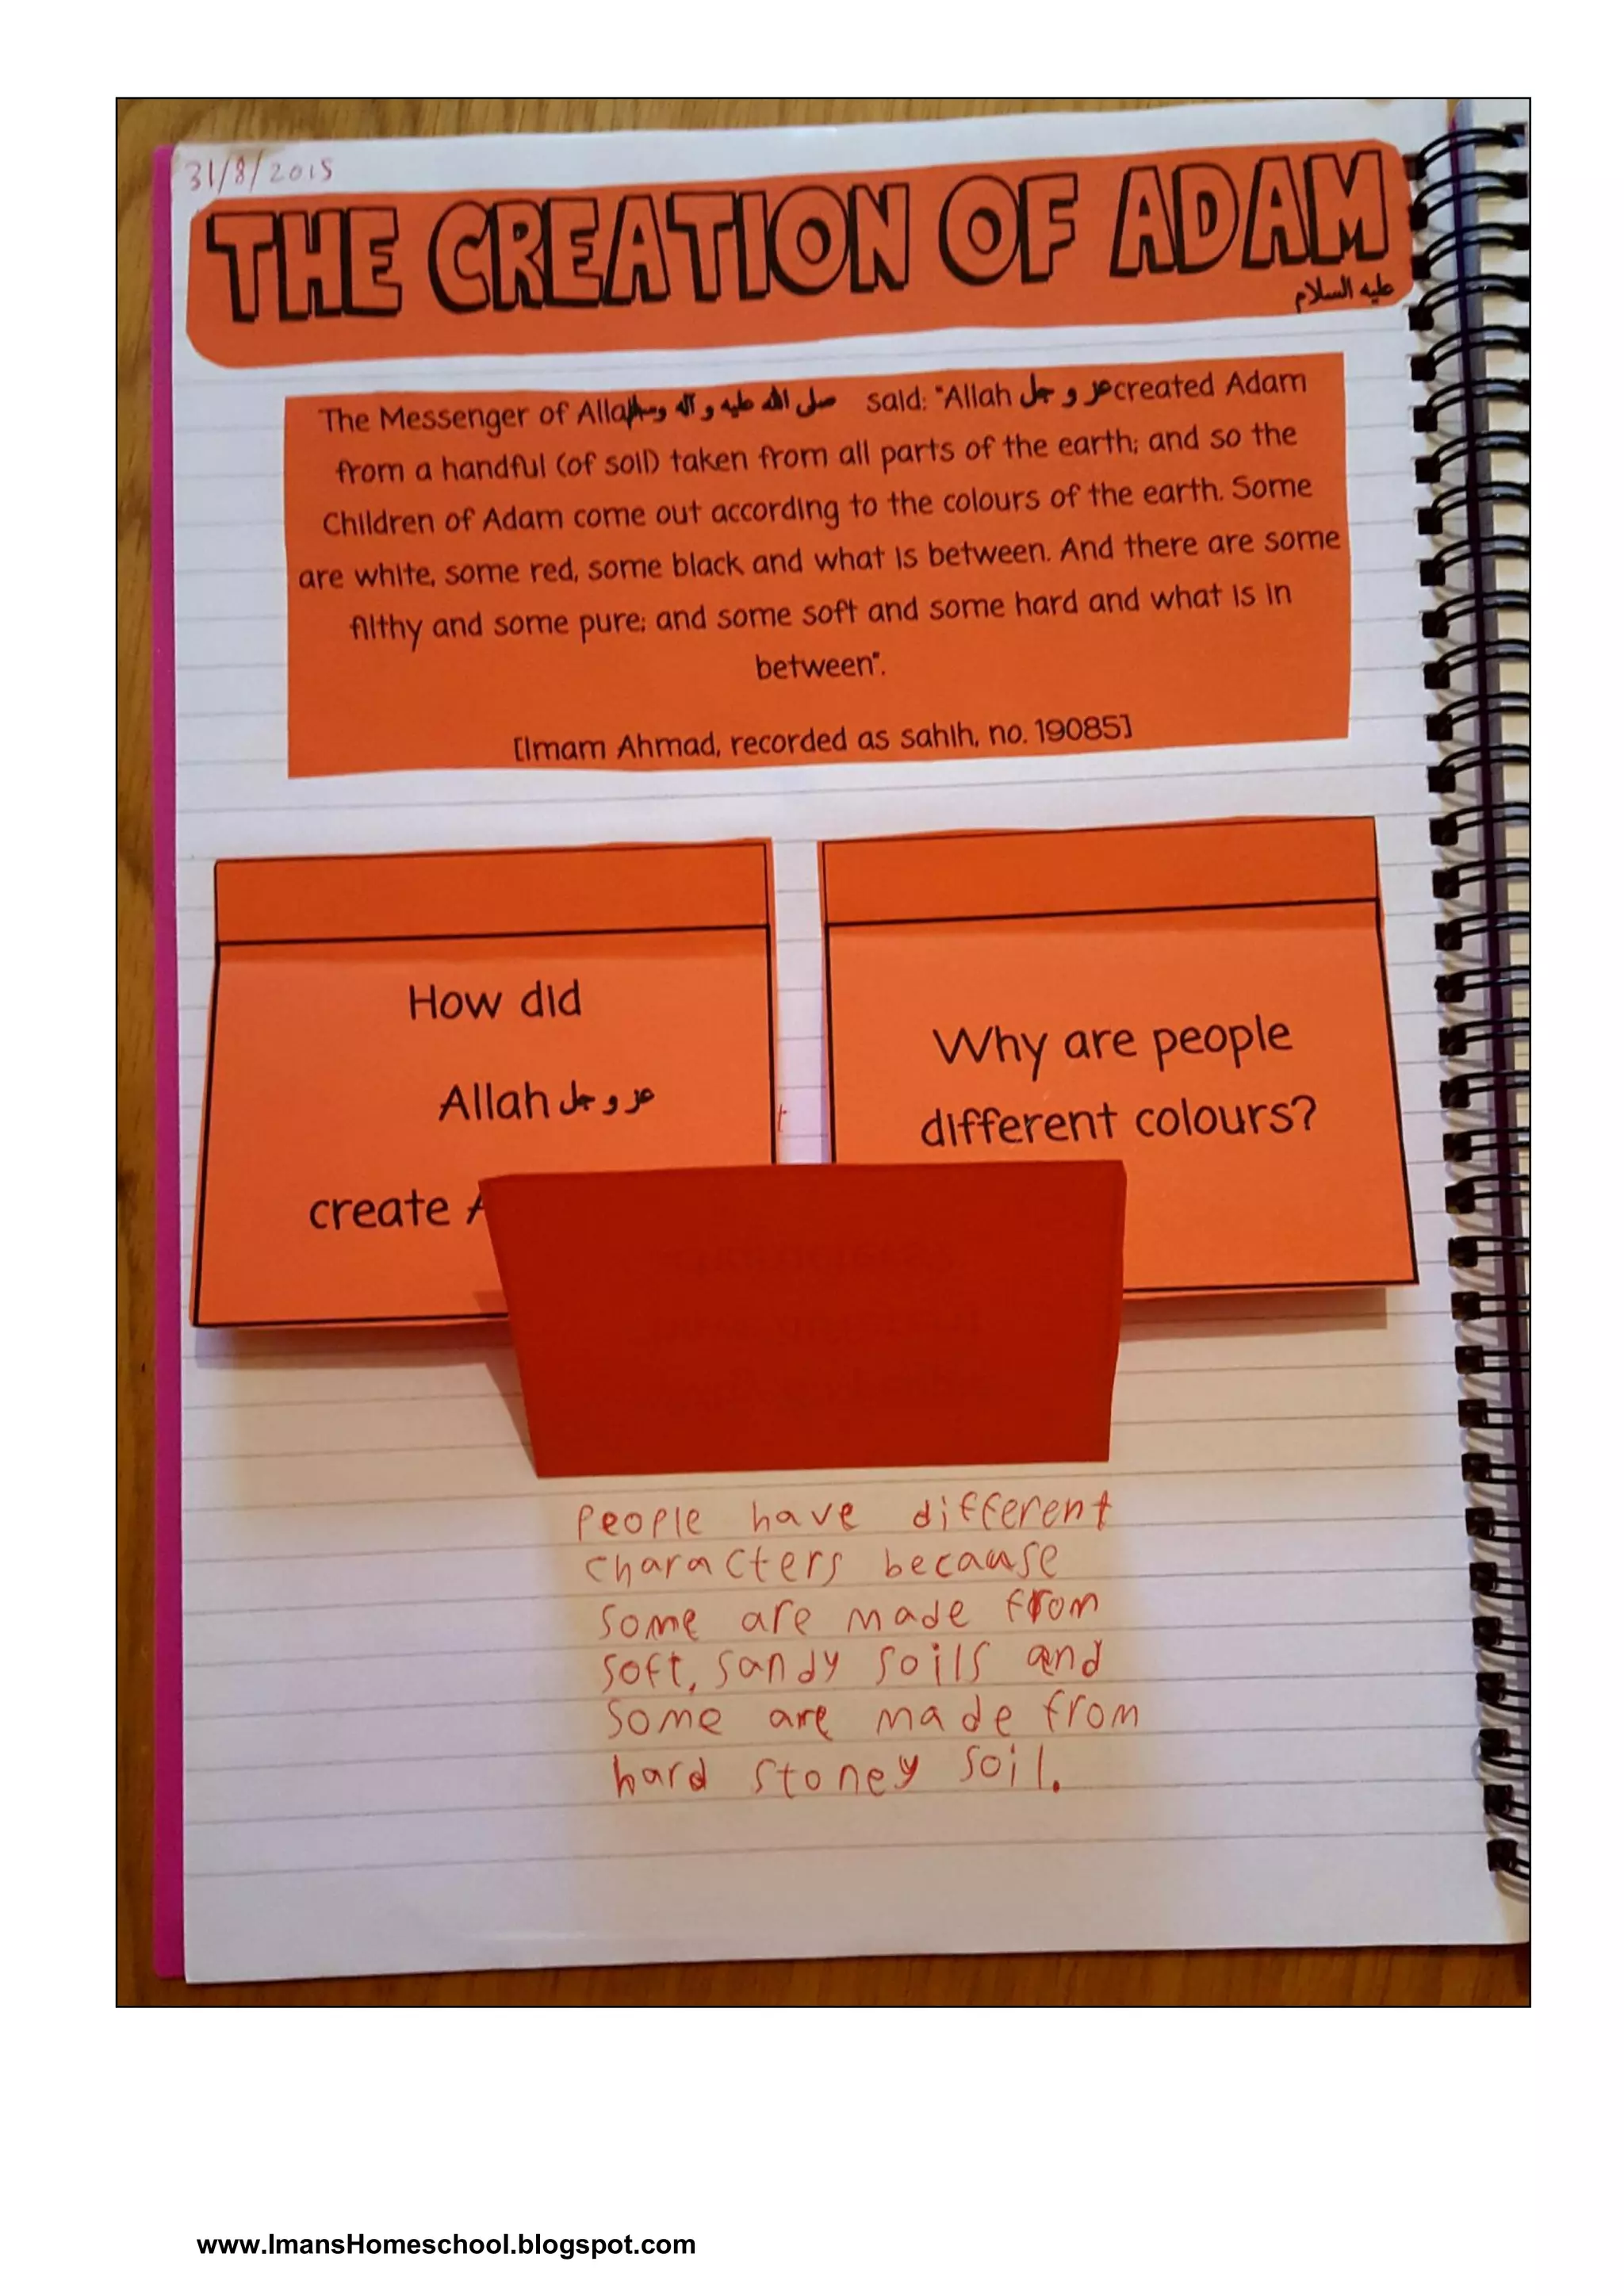 31/8/2015
THE CREATION OF ADAM
عليه السلام
The Messenger of Allah صلى الله عليه و آله وسلم said: "Allah عز و جل created Adam
from a handful (of soil) taken from all parts of the earth; and so the
Children of Adam come out according to the colours of the earth. Some
are white, some red, some black and what is between. And there are some
filthy and some pure; and some soft and some hard and what is in
between".
[Imam Ahmad, recorded as sahih, no. 19085]
How did
Allah عز و جل
create A
Why are people
different colours?
t
People have different
characters because
some are made from
soft, sandy soils and
some are made from
hard stoney soil.
www.ImansHomeschool.blogspot.com